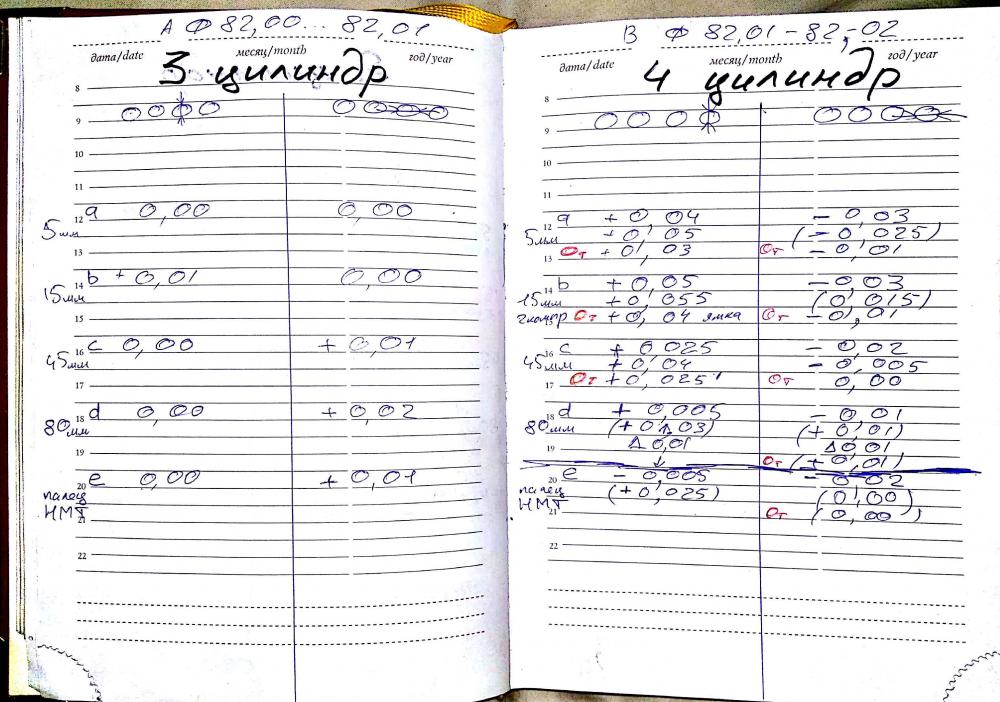 А Ф 82,00... 82,01
дата/date месяц/month год/year
3 цилиндр
8
9
10
11
12 a 0,00 0,00
5мм
13
14 b + 0,01 0,00
15мм
15
16 c 0,00 + 0,01
45мм
17
18 d 0,00 + 0,02
80мм
19
20 e 0,00 + 0,01
палец
НМТ
21
22
В Ф 82,01 - 82,-02
дата/date месяц/month год/year
4 цилиндр
8
9
10
11
12 a + 0,04 - 0,03
5мм + 0,05 (- 0,025)
13 От + 0,03 От - 0,01
14 b + 0,05 - 0,03
15мм + 0,055 (0,015)
15 От + 0,04 ямка От - 0,01
16 c + 0,025 - 0,02
45мм + 0,04 - 0,005
17 От + 0,025 От 0,00
18 d + 0,005 - 0,01
80мм (+ 0,03) (+ 0,01)
19 Δ 0,01 Δ 0,01
От (+ 0,01)
20 e - 0,005 - 0,02
палец (+ 0,025) (0,00)
НМТ
21 От (0,00)
22